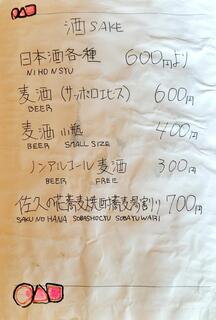 酒 SAKE
日本酒各種 600円より
NIHONSYU
麦酒(サッポロエビス) 600円
BEER
麦酒 小瓶 400円
BEER SMALL SIZE
ノンアルコール麦酒 300円
BEER FREE
佐久の花蕎麦焼酎蕎麦湯割り 700円
SAKUNOHANA SOBASHOCYU SOBAYUWARI